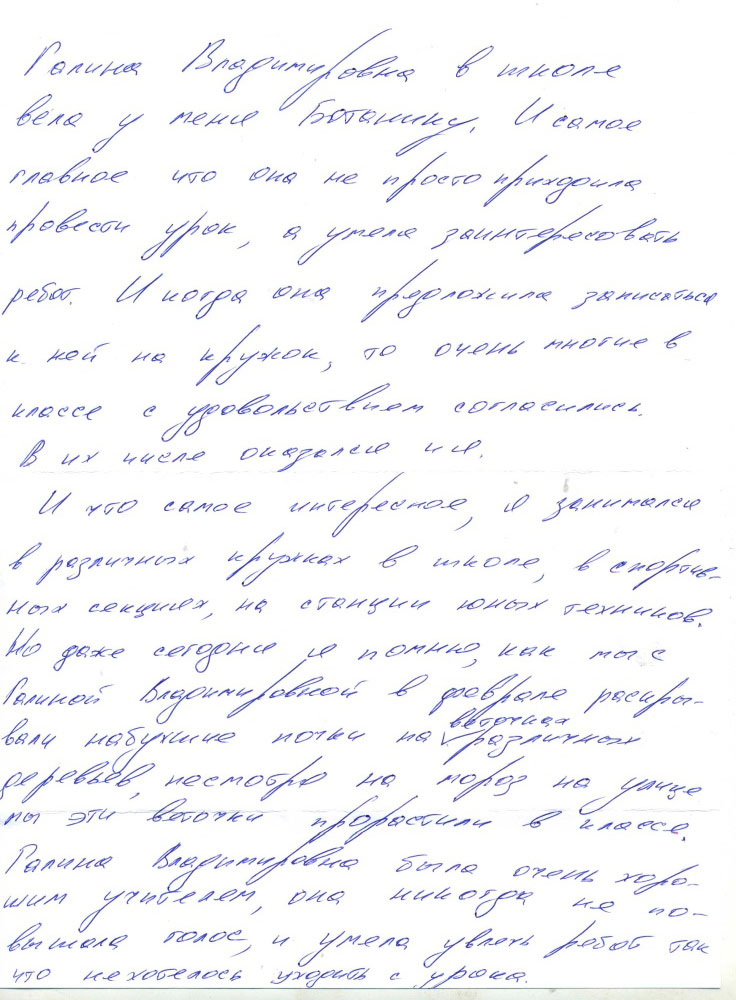 Галина Владимировна в школе
вела у меня Ботанику. И самое
главное что она не просто приходила
провести урок, а умела заинтересовать
ребят. И когда она предложила записаться
к ней на кружок, то очень многие в
классе с удовольствием согласились.
В их числе оказался и я.
И что самое интересное, я занимался
в различных кружках в школе, в спортив-
ных секциях, на станции юных техников.
Но даже сегодня я помню, как мы с
Галиной Владимировной в феврале раскры-
веточках
вали набухшие почки на различных
деревьев, несмотря на мороз на улице
мы эти веточки прорастили в классе.
Галина Владимировна была очень хоро-
шим учителем, она никогда не по-
вышала голос, и умела увлечь ребят так
что нехотелось уходить с урока.